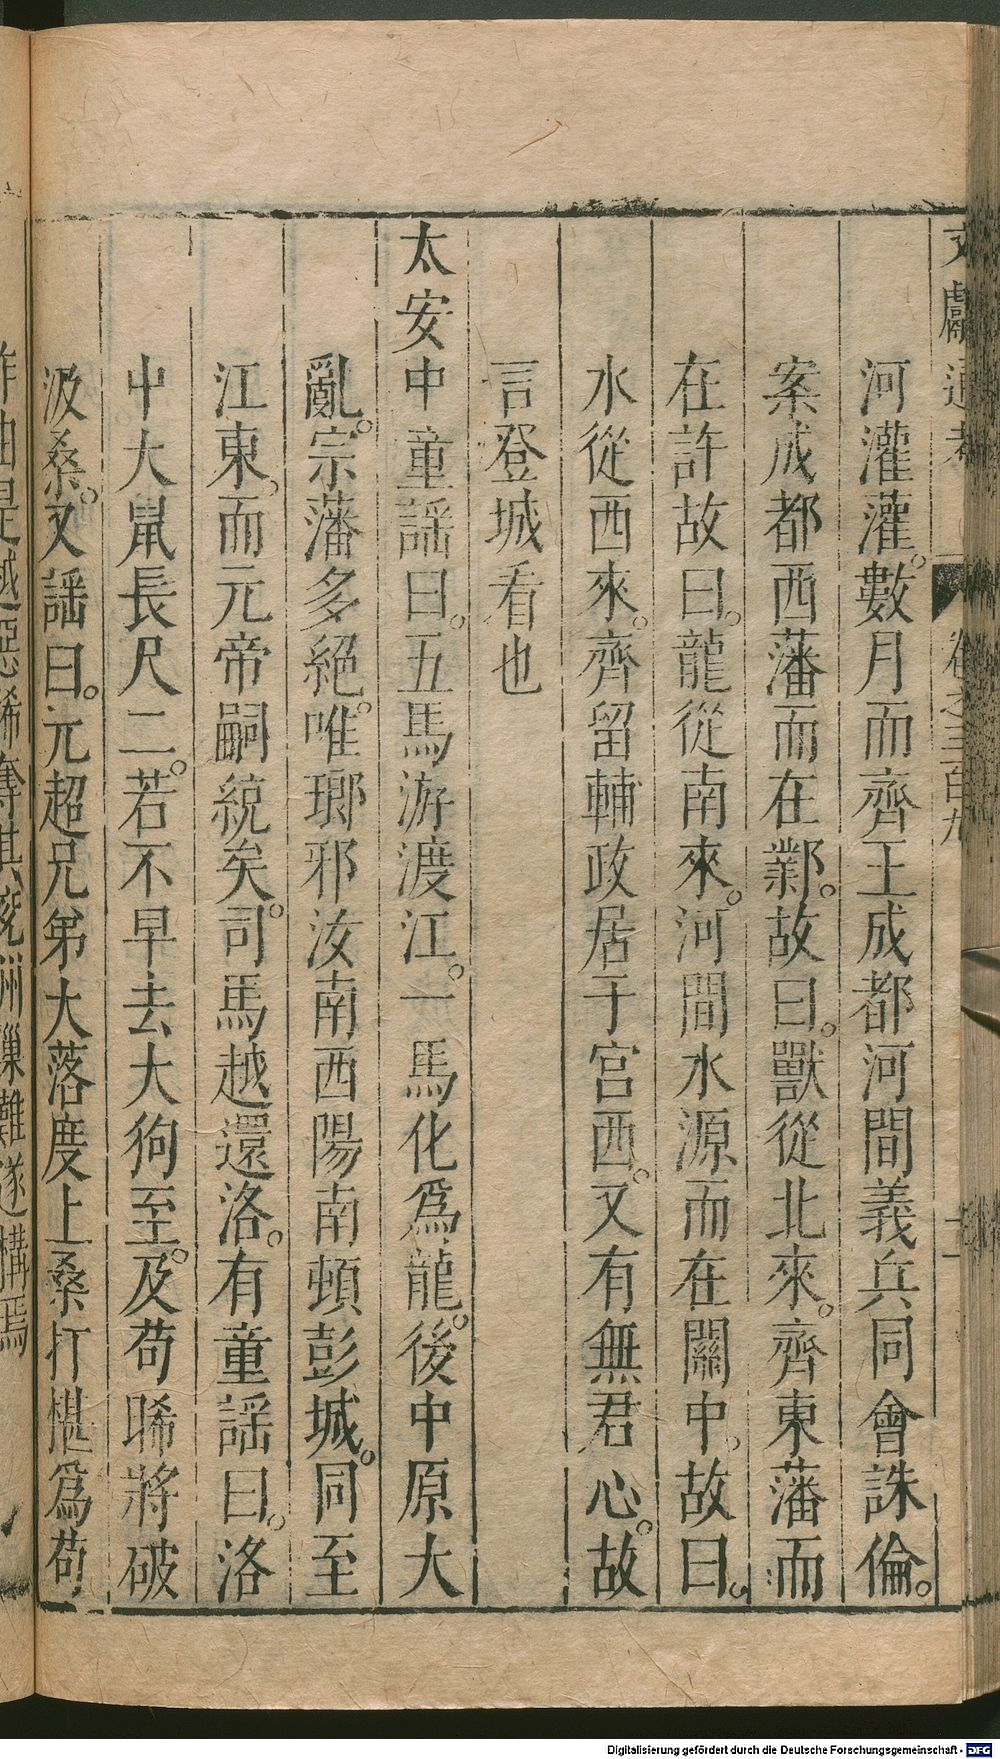 文獻通考 卷之三百九 十一
河灌灌。數月而齊王成都河間義兵同會誅倫。
案成都西藩而在鄴。故曰。獸從北來。齊東藩而
在許故曰。龍從南來。河間水源而在關中。故曰。
水從西來。齊留輔政居于宮西。又有無君心。故
言登城看也
太安中童謡曰。五馬游渡江。一馬化爲龍。後中原大
亂。宗藩多絕。唯瑯邪汝南西陽南頓彭城。同至
江東。而元帝嗣統矣。司馬越還洛。有童謡曰。洛
中大鼠長尺二。若不早去大狗至。及苟晞將破
汲桑。又謡曰。元超兄弟大落度上桑打椹爲苟
作由是越惡晞奪其兗州難遂搆焉
Digitalisierung gefördert durch die Deutsche Forschungsgemeinschaft - DFG